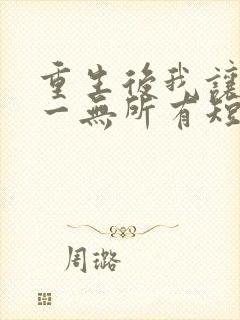 重生後我讓
一無所有短
周璐